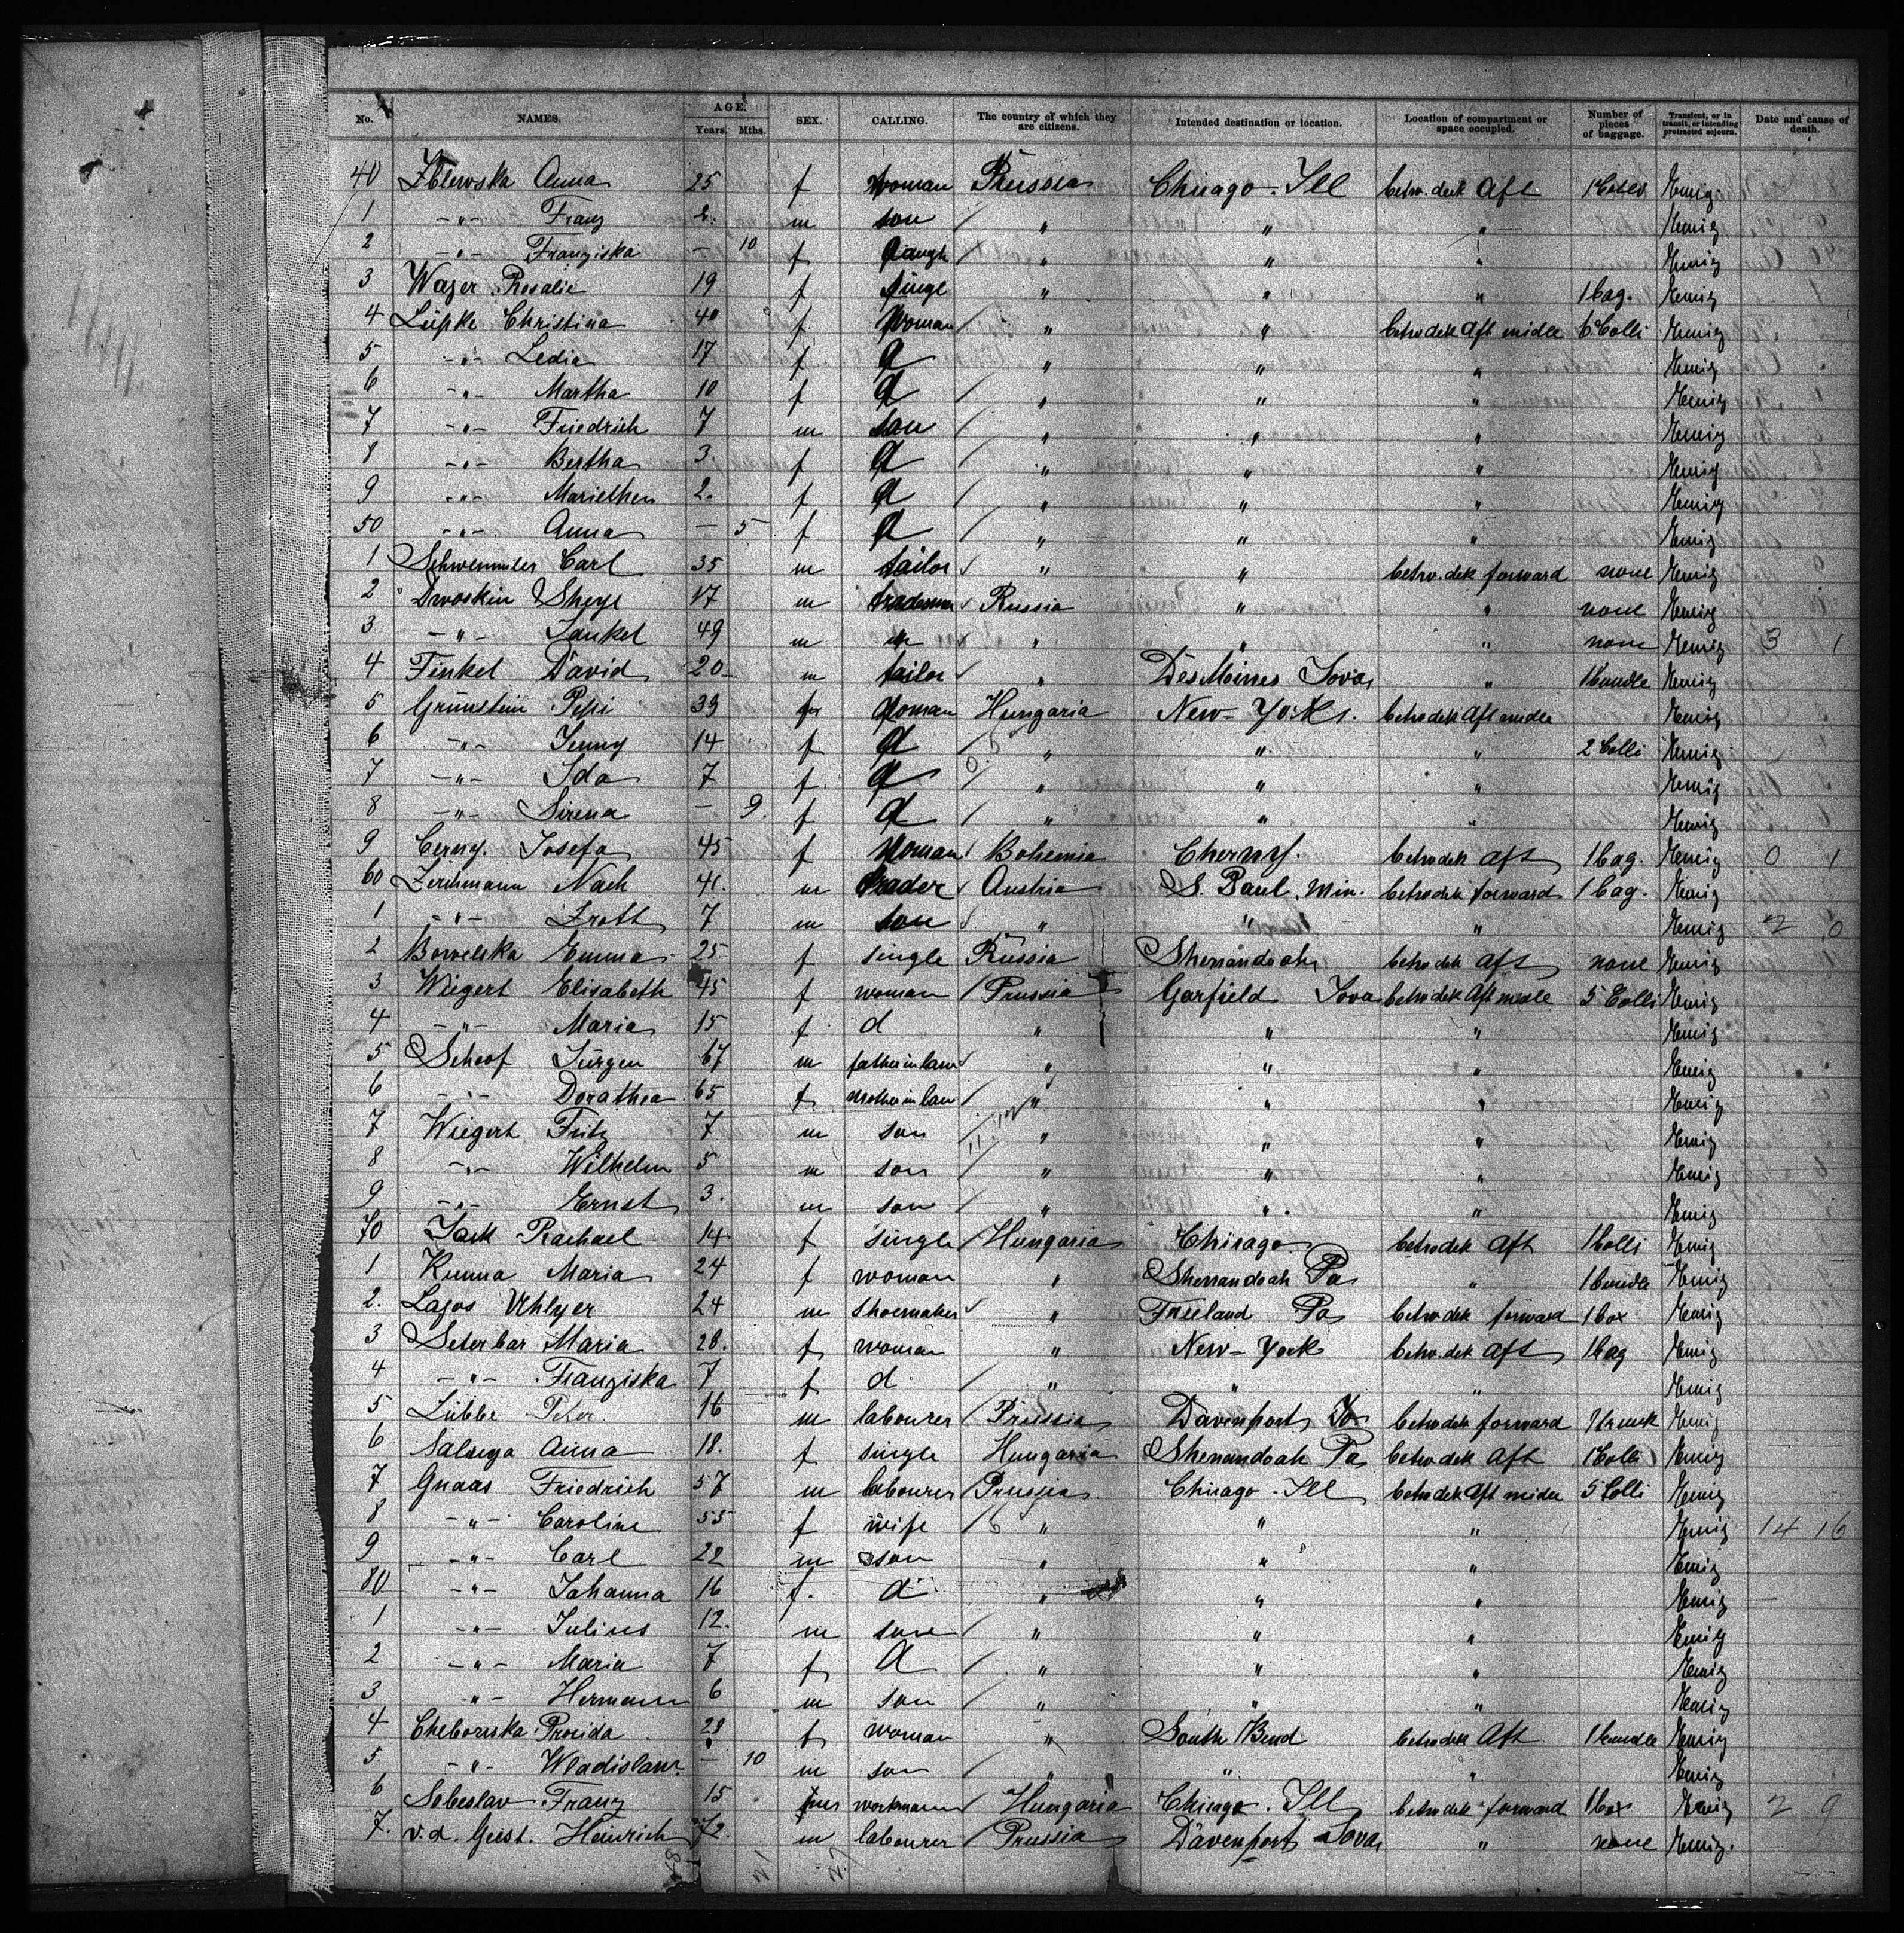 No. NAMES. AGE. Years. Mths. SEX. CALLING. The country of which they are citizens. Intended destination or location. Location of compartment or space occupied. Number of pieces of baggage. Transient, or in transit, or intending protracted sojourn. Date and cause of death.
40 Anna 25 f woman Prussia Chicago - Ill betw. deck Aft 1 Collo Emig
1 -"- Franz 2. m son " " " Emig
2 -"- Franziska - 10 f daugh " " " Emig
3 Wager Rosalie 19 f singl " " " 1 bag. Emig
4 Lüpke Christina 40 f Woman " " betwdek Aft midle 6 Colli Emig
5 -"- Ledia 17 f d " " " Emig
6 -"- Martha 10 f d " " " Emig
7 -"- Friedrich 7 m son " " " Emig
8 -"- Bertha 3. f d " " " Emig
9 -"- Mariethen 2. f d " " " Emig
50 -"- Anna - 5 f d " " " Emig
1 Carl 35 m tailor " " betw. dek forward none Emig
2 Dwoskin 17 m tradesman Russia " " none Emig
3 -"- Jankel 49 m " " " " none Emig 3 1
4 Finkel David 20 m tailor " Des Moines Iova " 1 bundle Emig
5 Grünstein Pepi 39 f Woman Hungaria New-York. betwdek Aft midle Emig
6 -"- Jenny 14 f d " " " 2 Colli Emig
7 -"- Ida 7 f. d " " " Emig
8 -"- Sirena - 9. f d " " " Emig
9 Cerny. Josefa 45 f Woman Bohemia Cherny. betwdek Aft 1 bag. Emig 0 1
60 Zerchmann Nach 41. m trader Austria S. Paul. Min. betwdek forward 1 bag. Emig
1 -"- 7 m son " " " Emig 2 0
2 Bowelska Emma 25 f single Russia Shenandoah betwdek Aft none Emig
3 Wiegert Elisabeth 45 f woman Prussia Garfield Iova betwdek Aft midle 5 Colli Emig
4 -"- Maria 15 f. d " " " Emig
5 Schoof Jürgen 67 m father in law " " " Emig
6 -"- Dorathea 65 f. mother in law " " " Emig
7 Wiegert Fritz 7 m son " " " Emig
8 -"- Wilhelm 5 m son " " " Emig
9 -"- Ernst 3. m son " " " Emig
70 Jack Rachael 14 f single Hungaria Chicago betwdek Aft 1 Colli Emig
1 Maria 24 f woman " Shenandoah Pa " 1 bundle Emig
2. Lajos Uhlyer 24 m shoemaker " Freeland Pa betwdek forward 1 box Emig
3 Seterbar Maria 28. f woman " New-York betw.dek Aft 1 bag Emig
4 -"- Franziska 7 f d " " " Emig
5 Lübbe Peter. 16 m labourer Prussia Davenport Io betwdek forward 1 trunk Emig
6 Anna 18. f single Hungaria Shenandoah Pa betwdek Aft 1 Colli Emig
7 Gnaas Friedrich 57 m labourer Prussia Chicago - Ill betwdek Aft midle 5 Colli Emig
8 -"- Caroline 55 f wife " " " Emig 14 16
9 -"- Carl 22 m son " " " Emig
80 -"- Johanna 16 f. d " " " Emig
1 -"- Julius 12. m son " " " Emig
2 -"- Maria 7 f d " " " Emig
3 -"- Hermann 6 m son " " " Emig
4 Cheborska 28 f woman " South Bend betwdek Aft 1 bundle Emig
5. -"- Wladislaw. - 10 m son " " " Emig
6 Sobeslav Franz 15 m workman Hungaria Chicago. Ill betwdek forward 1 box Emig 2 9
7. v.d. Geest. Heinrich 72. m labourer Prussia Davenport Iova " none Emig.